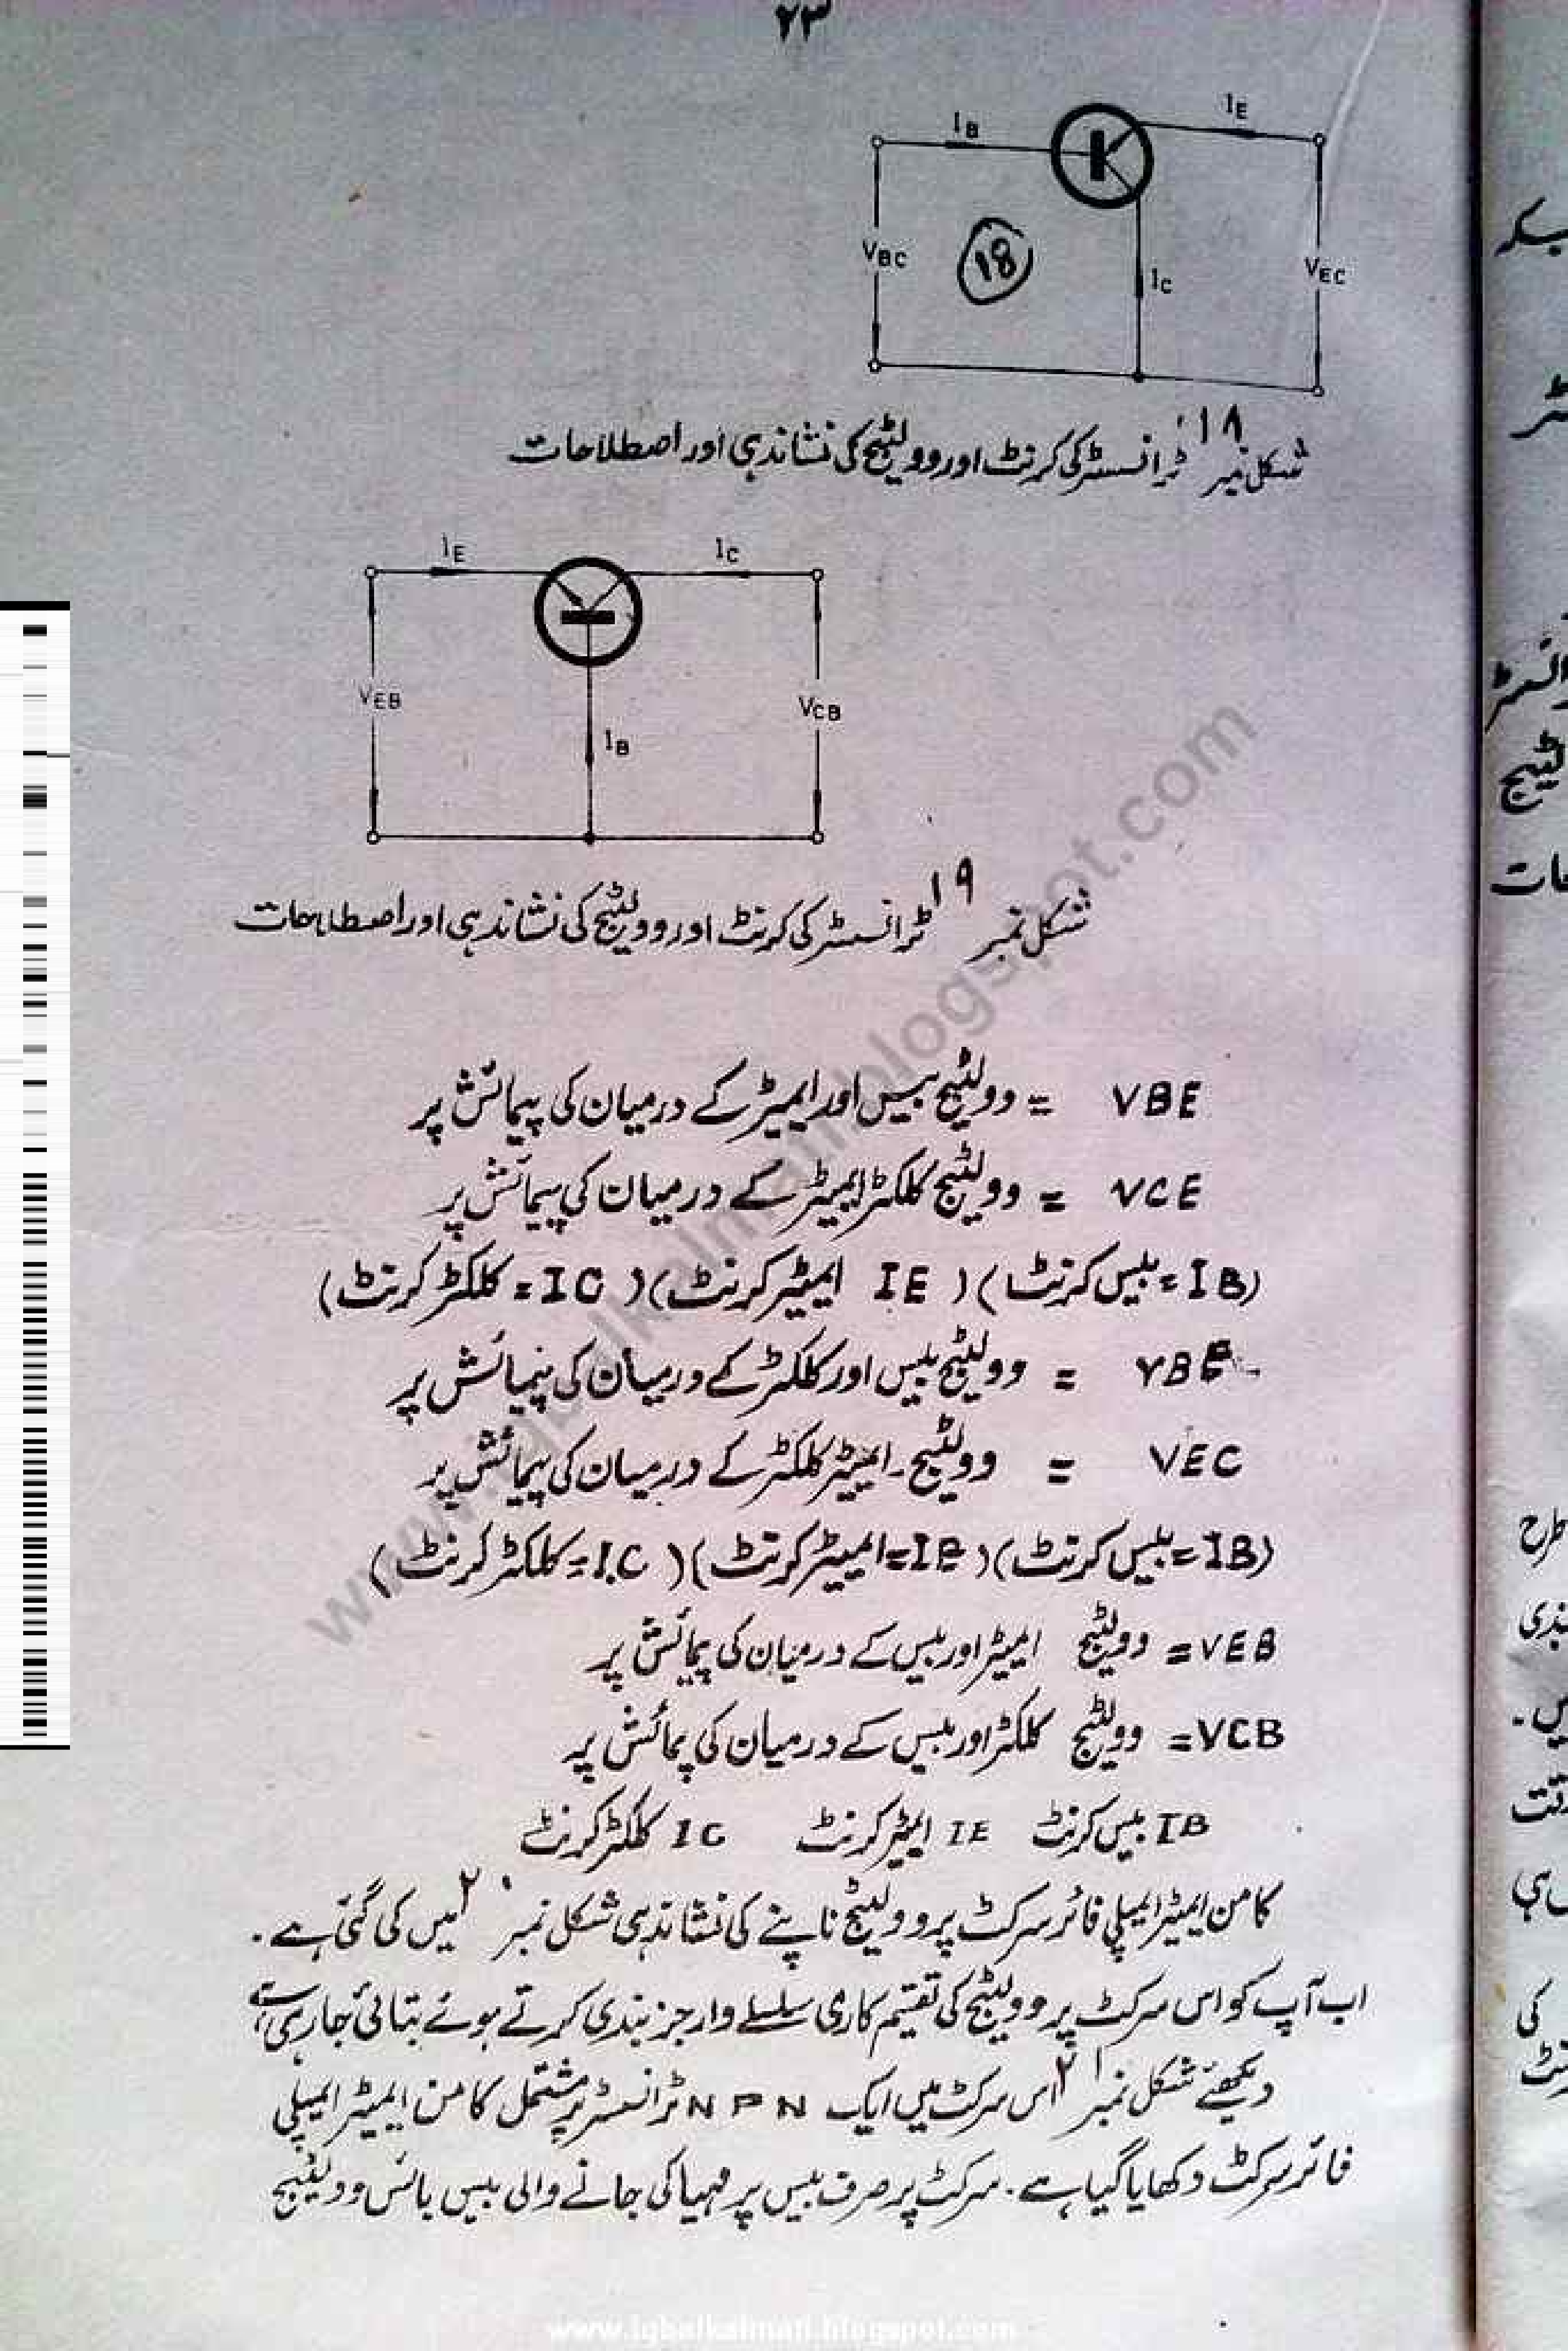 ۲۳
IB
IE
VBC
18
IC
VEC
شکل نمبر ۱۸ ٹرانسسٹر کی کرنٹ اور وولٹیج کی نشاندہی اور اصطلاحات
IE
IC
VEB
VCB
IB
شکل نمبر ۱۹ ٹرانسسٹر کی کرنٹ اور وولٹیج کی نشاندہی اور اصطلاحات
VBE = وولٹیج بیس اور ایمیٹر کے درمیان کی پیمائش پر
VCE = وولٹیج کلکٹر ایمیٹر کے درمیان کی پیمائش پر
(IB = بیس کرنٹ) (IE ایمیٹر کرنٹ) (IC = کلکٹر کرنٹ)
= وولٹیج بیس اور کلکٹر کے درمیان کی پیمائش پر
VEC = وولٹیج۔ ایمیٹر کلکٹر کے درمیان کی پیمائش پر
(IB = بیس کرنٹ) (IE = ایمیٹر کرنٹ) (IC = کلکٹر کرنٹ)
VEB = وولٹیج ایمیٹر اور بیس کے درمیان کی پیمائش پر
VCB = وولٹیج کلکٹر اور بیس کے درمیان کی پیمائش پر
IB بیس کرنٹ IE ایمیٹر کرنٹ IC کلکٹر کرنٹ
کامن ایمیٹر ایمپلی فائر سرکٹ پر وولٹیج ناپنے کی نشاندہی شکل نمبر ۲۰ میں کی گئی ہے۔
اب آپ کو اس سرکٹ پر وولٹیج کی تقسیم کاری سلسلے وار جز بندی کرتے ہوئے بتائی جا رہی ہے
دیکھئے شکل نمبر ۲۱ اس سرکٹ میں ایک NPN ٹرانسسٹر پر مشتمل کامن ایمیٹر ایمپلی
فائر سرکٹ دکھایا گیا ہے۔ سرکٹ پر صرف بیس پر مہیا کی جانے والی بیس بائس وولٹیج
www.iqbalkalmati.blogspot.com
www.iqbalkalmati.blogspot.com